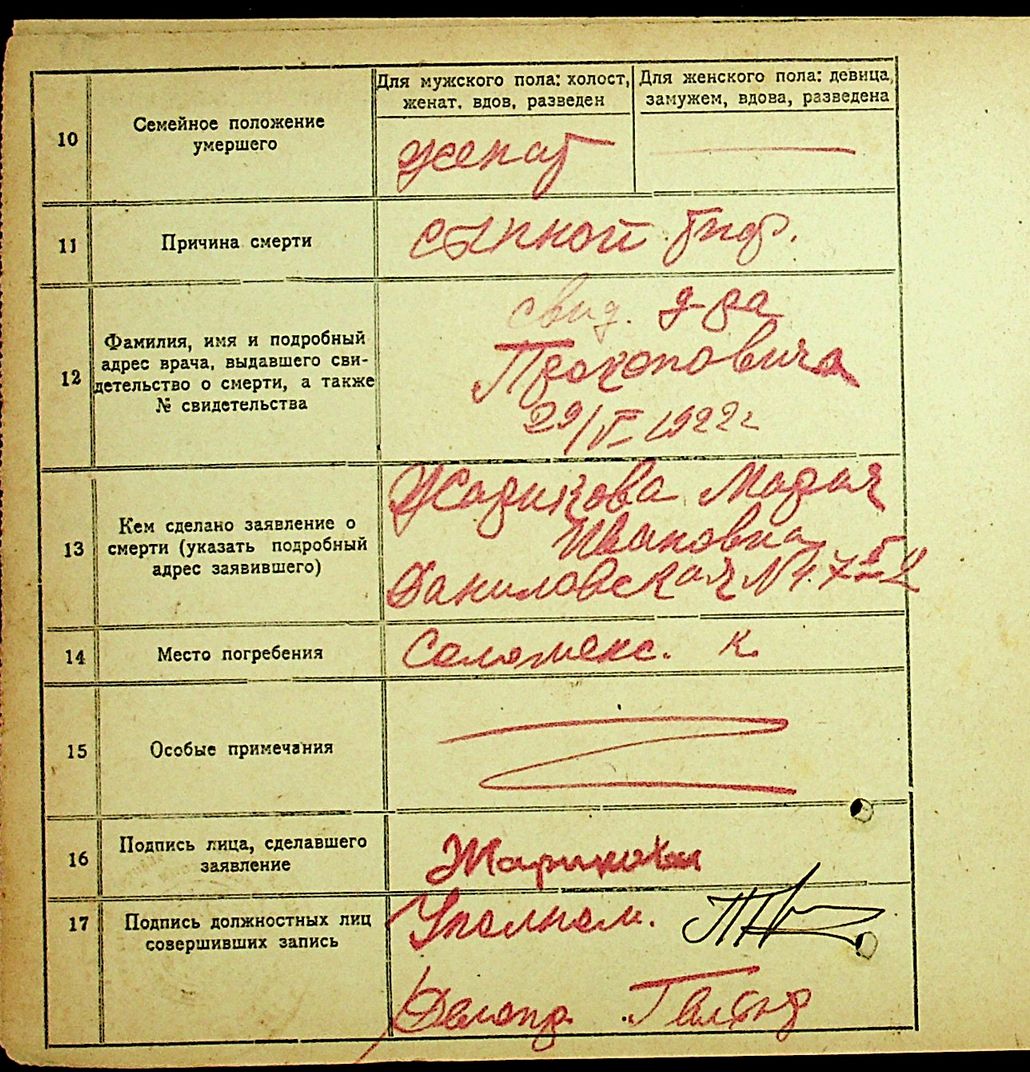 Для мужского пола: холост, женат, вдов, разведен
Для женского пола: девица, замужем, вдова, разведена
10
Семейное положение
умершего
женат
11
Причина смерти
сыпной тиф.
12
Фамилия, имя и подробный
адрес врача, выдавшего сви-
детельство о смерти, а также
№ свидетельства
свид. д-ра
Прокоповича
29/VI 1922 г
13
Кем сделано заявление о
смерти (указать подробный
адрес заявившего)
Жарикова Мария
Ивановна
Даниловская №
14
Место погребения
Соломенс. к.
15
Особые примечания
16
Подпись лица, сделавшего
заявление
Жарикова
17
Подпись должностных лиц
совершивших запись
Уполном.
Делопр.